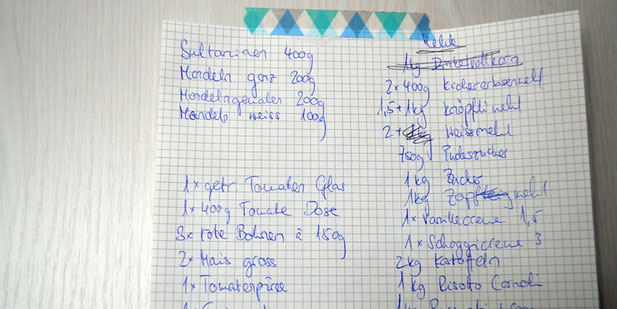 Sultaninen 400g
Mandeln ganz 200g
Mandeln gemalen 200g
Mandeln weiss 100g
1x getr Tomaten Glas
1x 400g Tomate Dose
3x rote Bohnen à 150g
2x Mais gross
1x Tomatenpüree
Mehle
1kg Dinkelvollkorn
2x 400g Kichererbsenmehl
1,5+1kg Knöpflimehl
2+ Weissmehl
750g Puderzucker
1kg Zucker
1kg Zopfmehl
1x Vanillecreme 1,5
1x Schoggicreme 3
2kg Kartoffeln
1kg Risoto